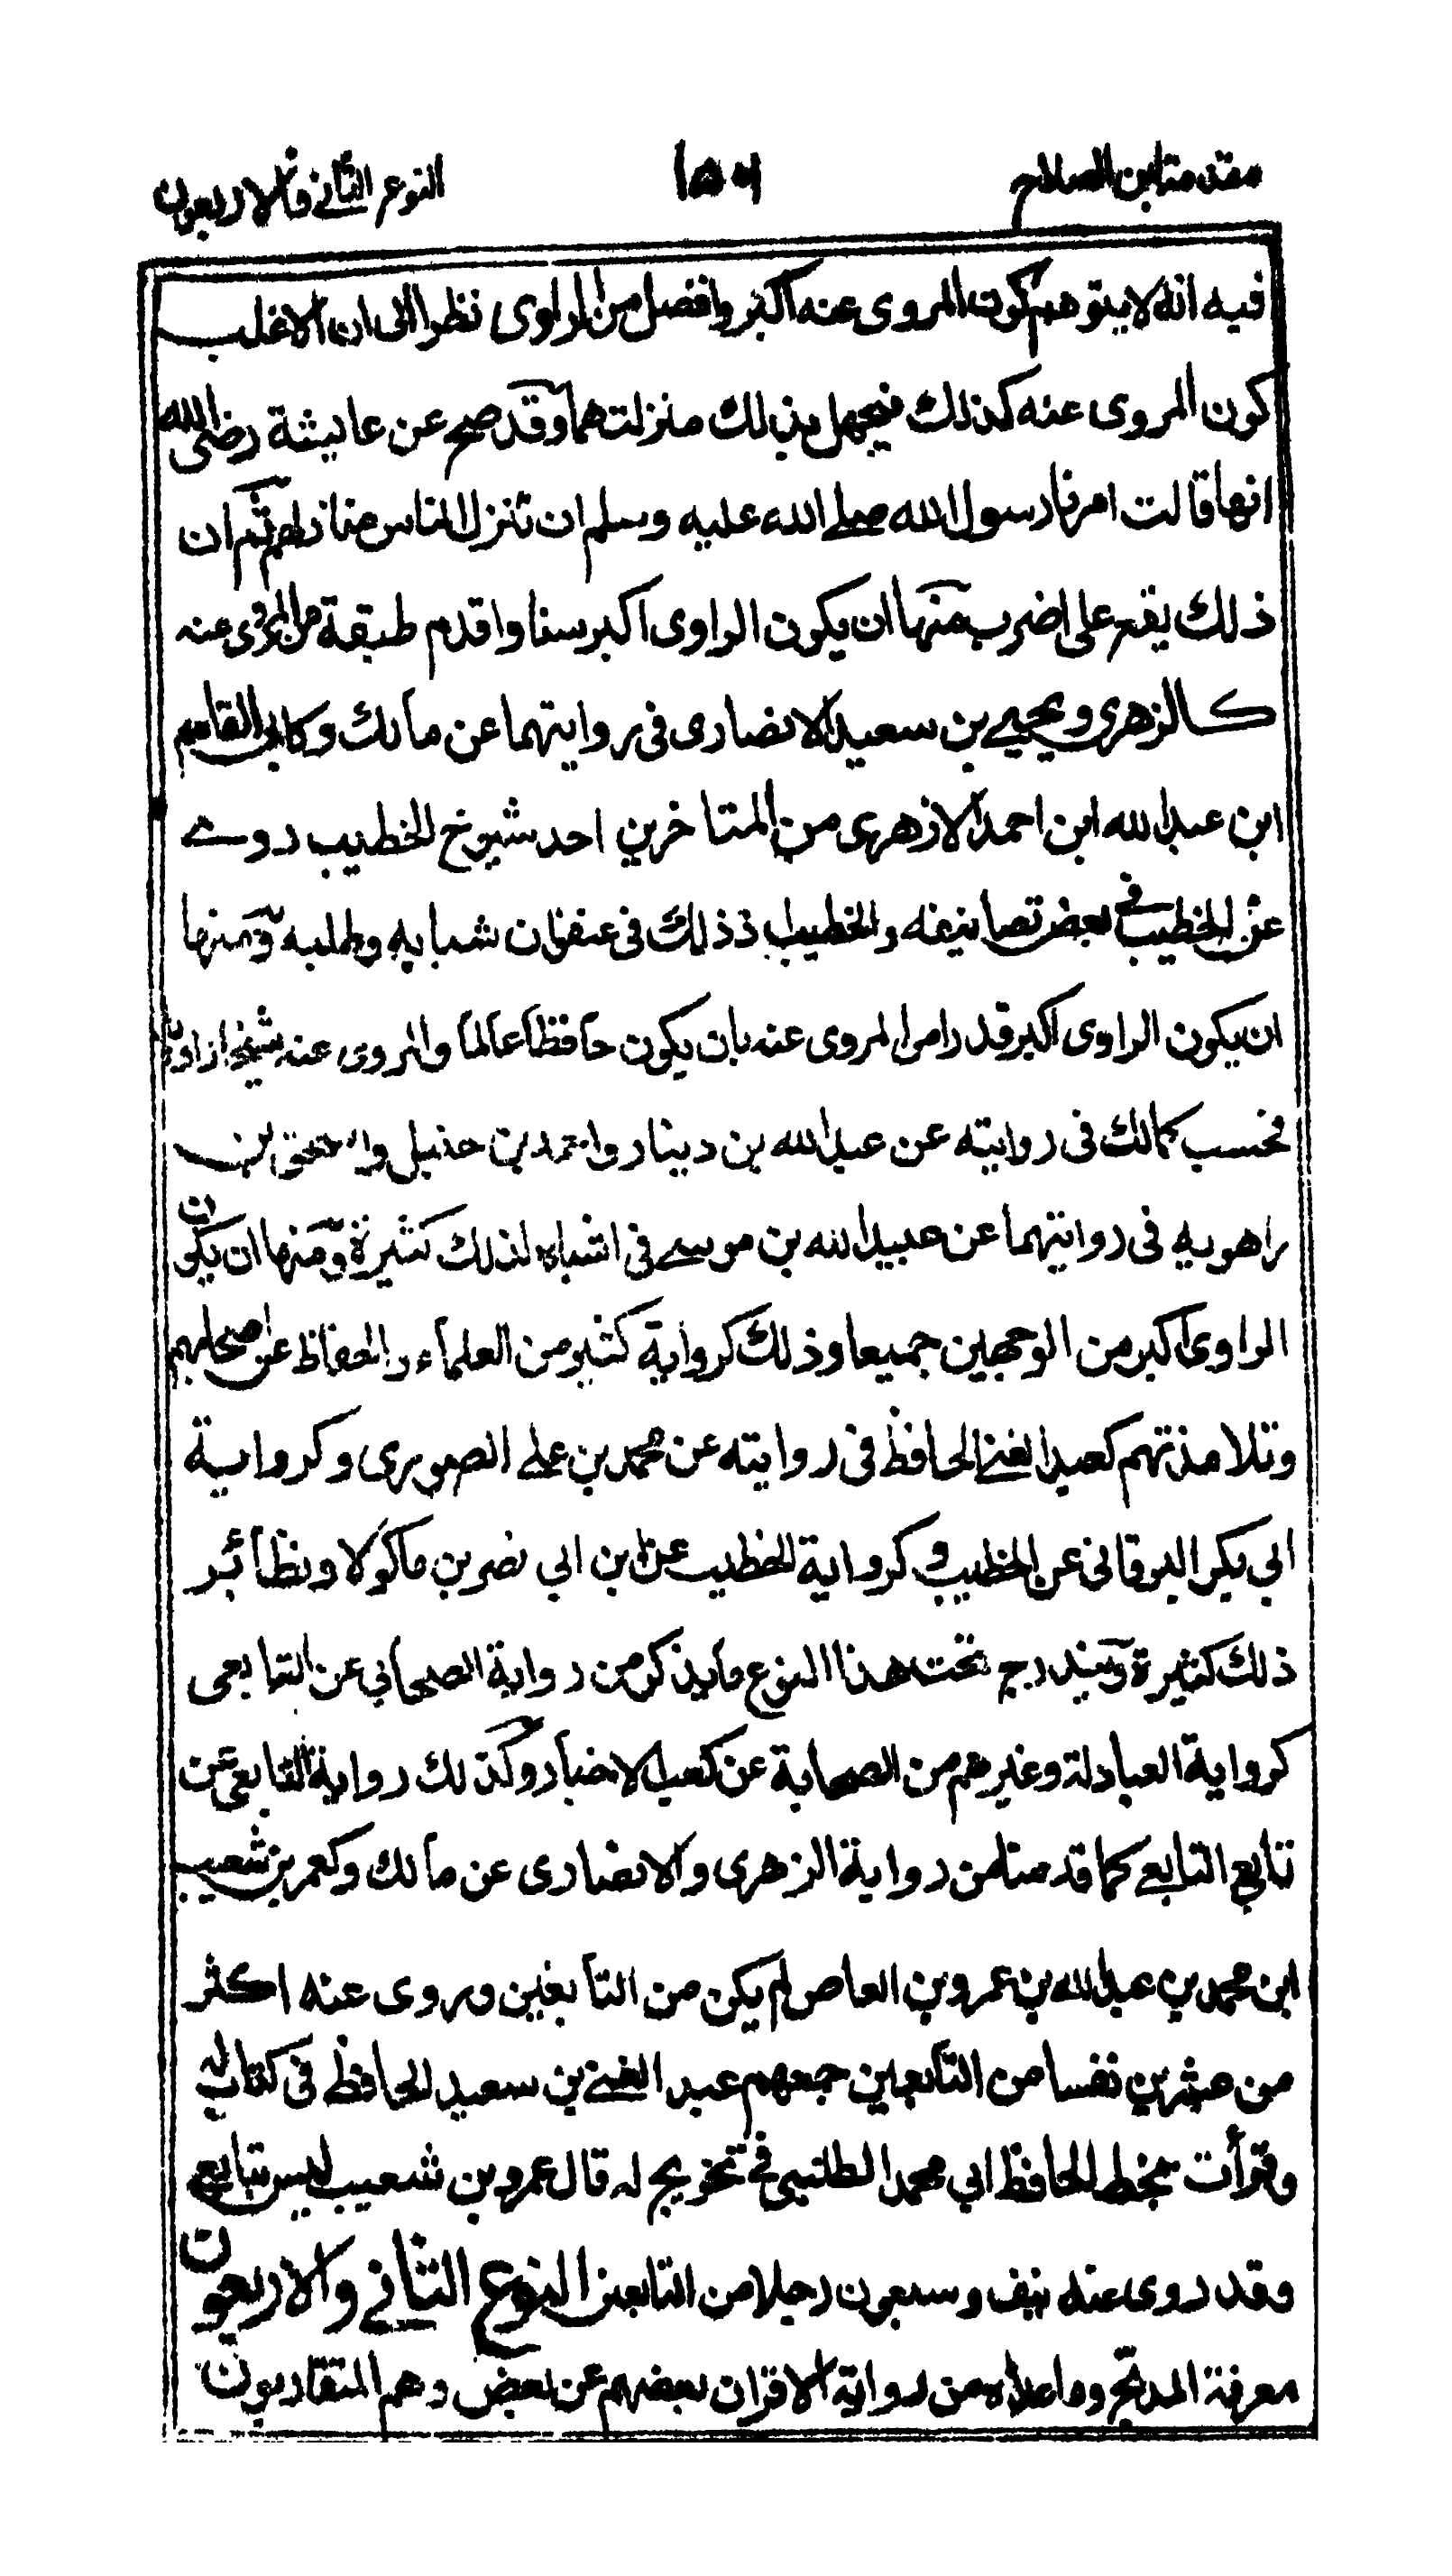 مقدمة ابن الصلاح
(١٥٠)
النوع الثاني والاربعون
فيه انه لا يتوهم كون المروى عنه اكبر وافضل من الراوى نظرا الى ان الاغلب
كون المروى عنه كذلك فيجهل بذلك منزلتهما وقد صح عن عايشة رضى الله
انها قالت امرنا رسول الله صلى الله عليه وسلم ان ننزل الناس منازلهم ثم ان
ذلك يقع على اضرب منها ان يكون الراوى اكبر سنا واقدم طبقة من المروى عنه
كالزهرى ويحيى بن سعيد الانصارى فى روايتهما عن مالك وكابى القاسم
ابن عبد الله ابن احمد الازهرى من المتاخرين احد شيوخ الخطيب روى
عن الخطيب فى بعض تصانيفه والخطيب اذ ذلك فى عنفوان شبابه وطلبه ومنها
ان يكون الراوى اكبر قدرا من المروى عنه بان يكون حافظا عالما والمروى عنه شيخا راويا
فحسب كمالك فى روايته عن عبد الله بن دينار واحمد بن حنبل واسحق بن
راهويه فى روايتهما عن عبيد الله بن موسى فى اشباه لذلك كثيرة ومنها ان يكون
الراوى اكبر من الوجهين جميعا وذلك كرواية كثير من العلماء والحفاظ عن اصحابهم
وتلامذتهم كعبد الغنى الحافظ فى روايته عن محمد بن على الصورى وكرواية
ابي بكر البرقانى عن الخطيب وكرواية الخطيب عن ابن ابي نصر بن ماكولا ونظائر
ذلك كثيرة ويندرج تحت هذا النوع مايذكر من رواية الصحابي عن التابعى
كرواية العبادلة وغيرهم من الصحابة عن كعب الاحبار وكذلك رواية التابعى عن
تابع التابعى كما قدمنا من رواية الزهرى والانصارى عن مالك وكعمر بن شعيب
ابن محمد بن عبد الله بن عمرو بن العاص لم يكن من التابعين وروى عنه اكثر
من عشرين نفسا من التابعين جمعهم عبد الغنى بن سعيد الحافظ فى كتاب له
وقرأت بخط الحافظ ابي محمد الطبسى فى تخريج له قال عمرو بن شعيب ليس بتابعى
وقد روى عنه نيف وسبعون رجلا من التابعين النوع الثاني والاربعون
معرفة المدبج وما عداه من رواية الاقران بعضهم عن بعض وهم المتقاربون